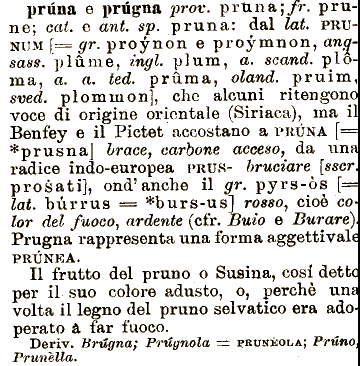 prúna e prúgna prov. pruna; fr. pru-
ne; cat. e ant. sp. pruna: dal lat. PRU-
NUM [= gr. proýnon e proýmnon, ang-
sass. plûme, ingl. plum, a. scand. plô-
ma, a. a. ted. prûma, oland. pruim,
sved. plommon], che alcuni ritengono
voce di origine orientale (Siriaca), ma il
Benfey e il Pictet accostano a PRÚNA [=
*prusna] brace, carbone acceso, da una
radice indo-europea PRUS- bruciare [sscr.
prošati], ond'anche il gr. pyrs-òs [=
lat. búrrus = *burs-us] rosso, cioè co-
lor del fuoco, ardente (cfr. Buio e Burare).
Prugna rappresenta una forma aggettivale
PRÚNEA.
Il frutto del pruno o Susina, cosí detto
per il suo colore adusto, o, perchè una
volta il legno del pruno selvatico era ado-
perato a far fuoco.
Deriv. Brúgna; Prúgnola = PRUNÈOLA; Prúno,
Prunèlla.